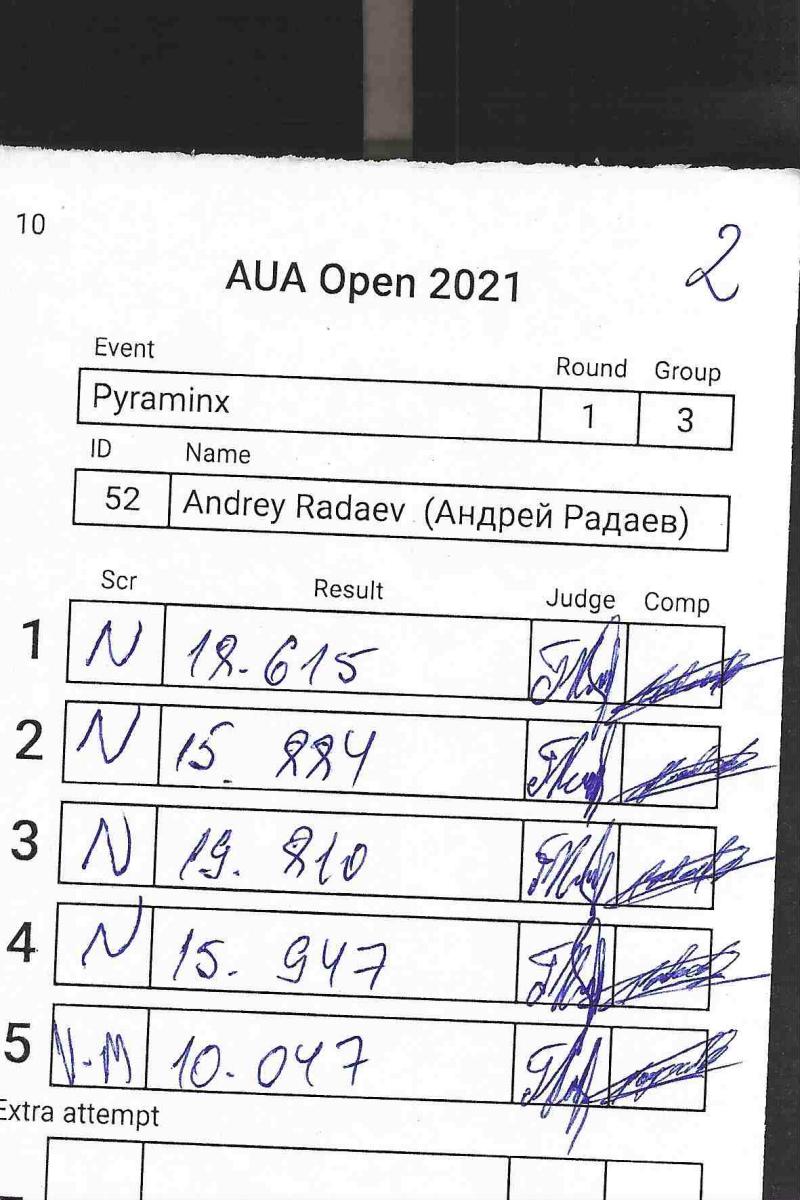 10
2
AUA Open 2021
Event
Round Group
Pyraminx 1 3
ID Name
52 Andrey Radaev (Андрей Радаев)
Scr Result Judge Comp
1 N 12.615
2 N 15. 224
3 N 19. 210
4 N 15. 947
5 N-M 10.047
Extra attempt